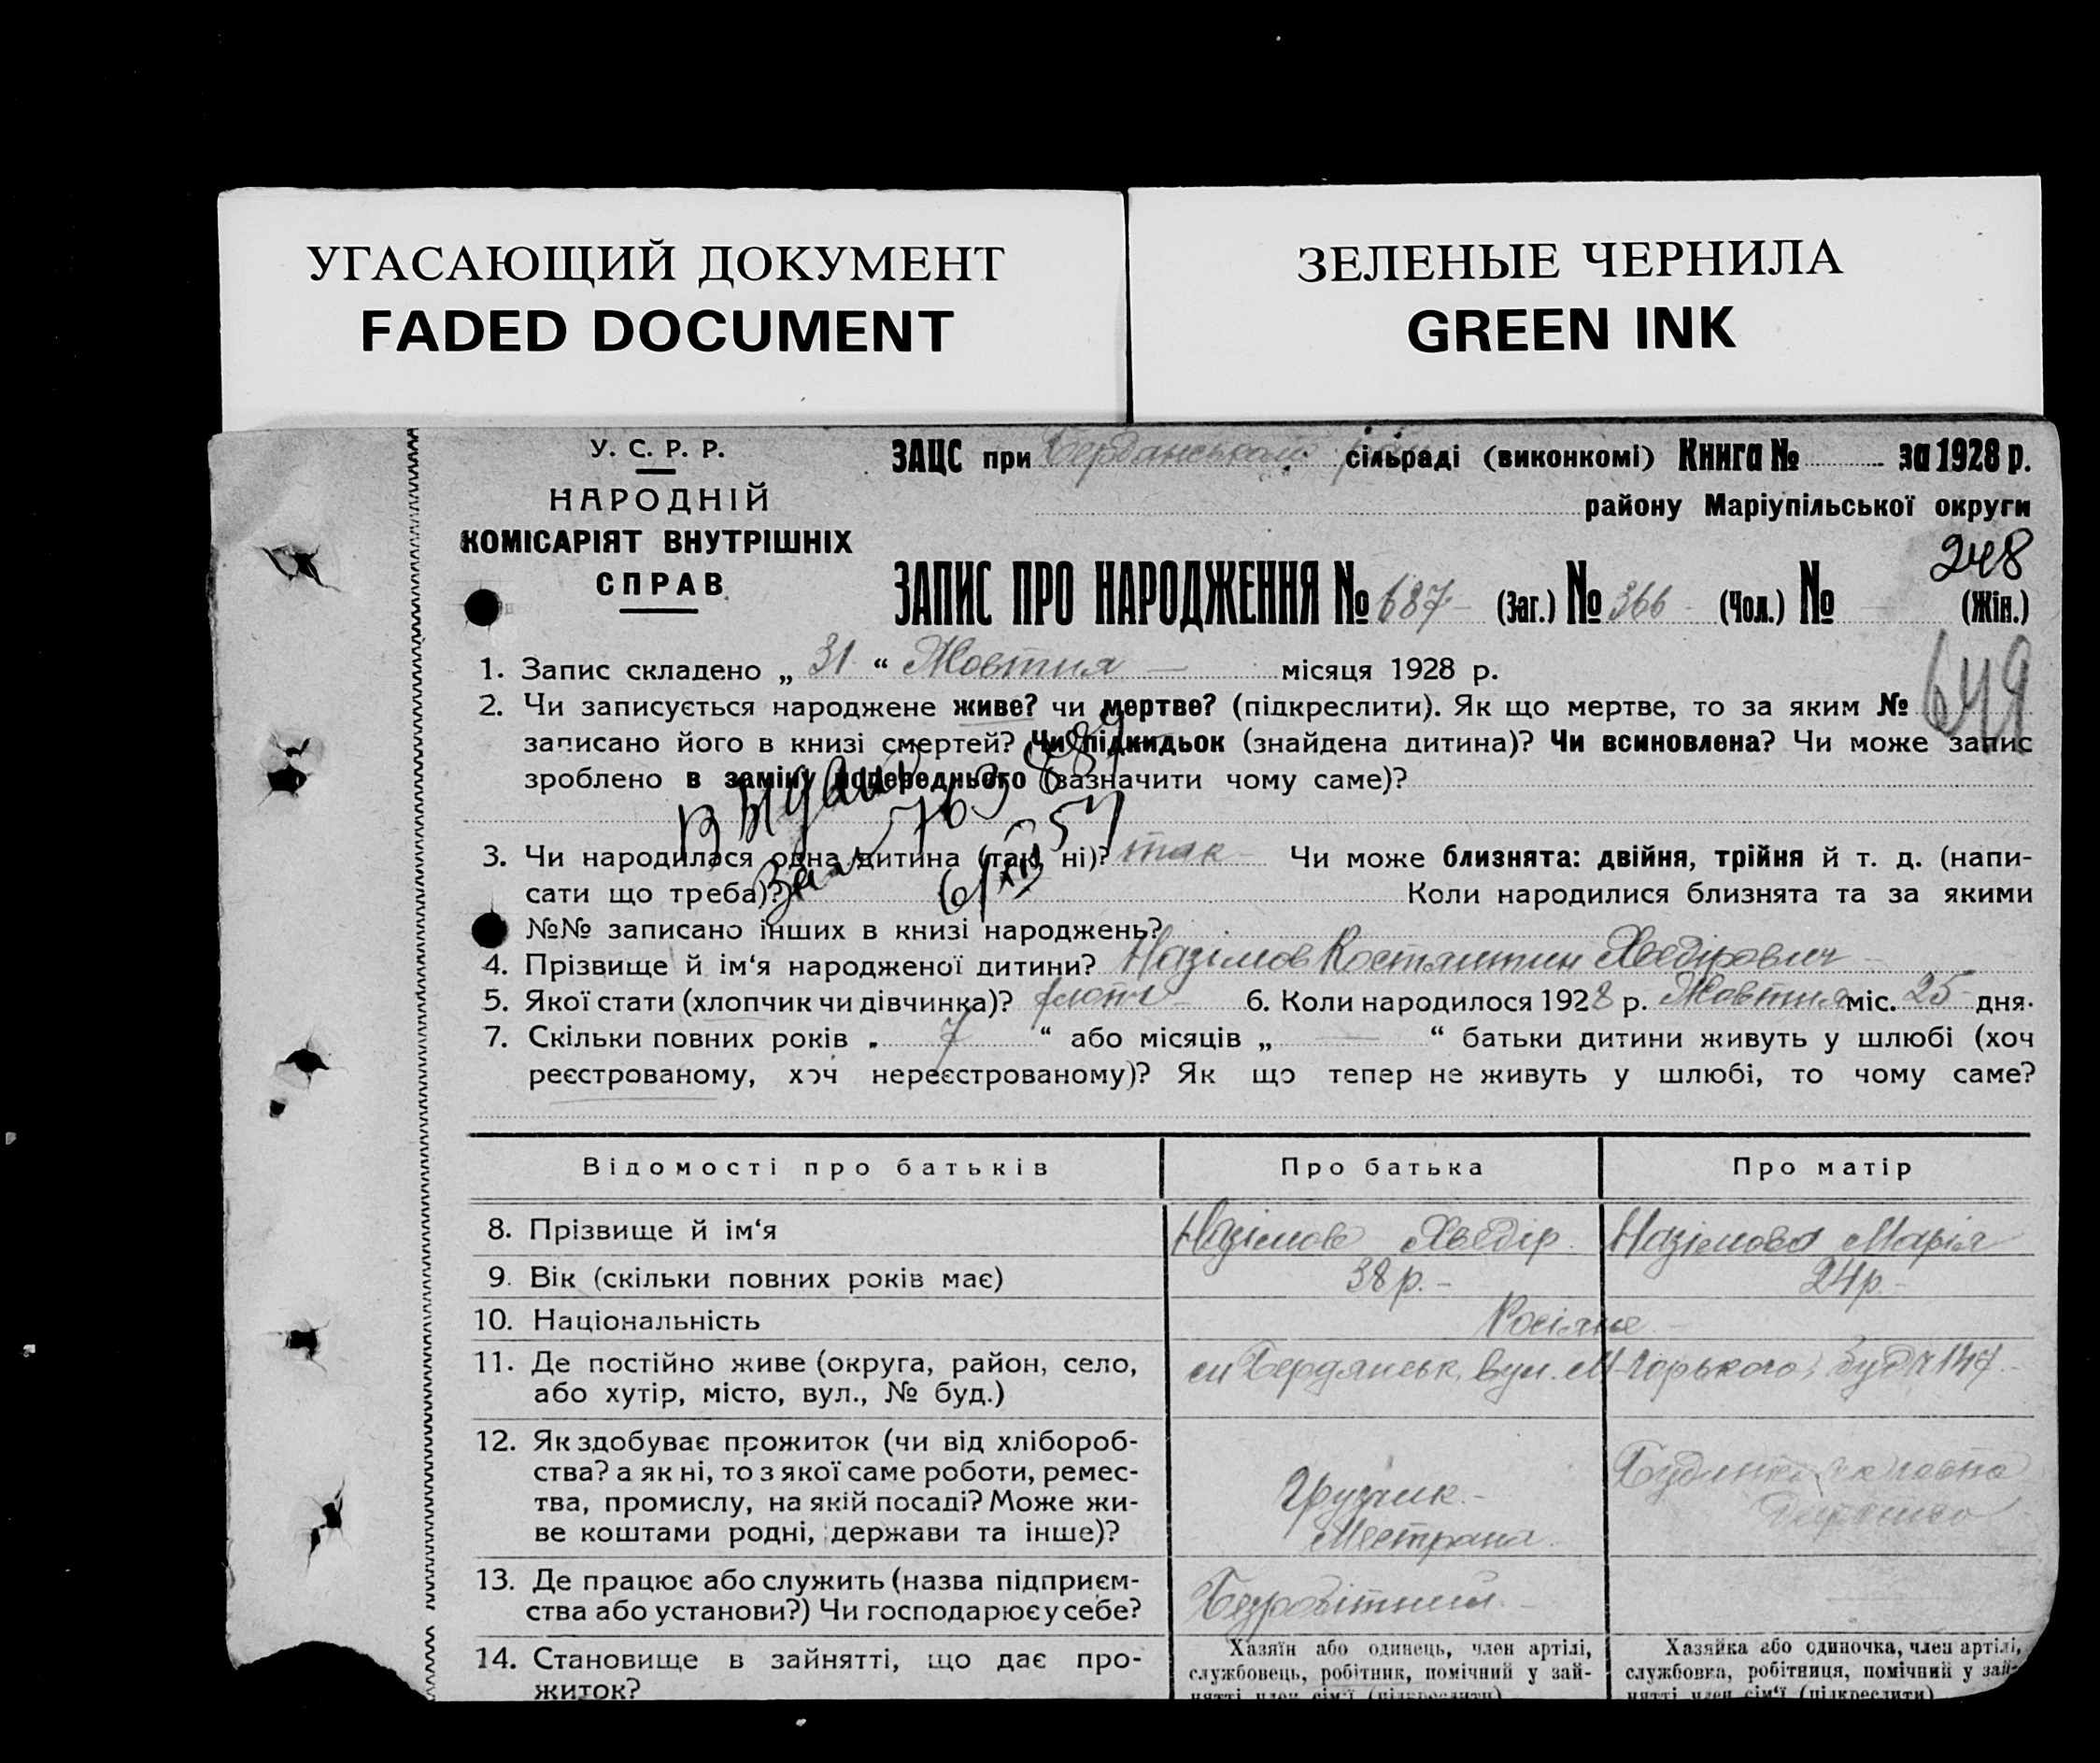 УГАСАЮЩИЙ ДОКУМЕНТ
FADED DOCUMENT
ЗЕЛЕНЫЕ ЧЕРНИЛА
GREEN INK
У. С. Р. Р.
НАРОДНІЙ
КОМІСАРІЯТ ВНУТРІШНІХ
СПРАВ
ЗАЦС при сільраді (виконкомі) Книга № за 1928 р.
району Маріупільської округи
248
ЗАПИС ПРО НАРОДЖЕННЯ № 687 (Заг.) № 366 (Чол.) № (Жін.)
649
1. Запис складено „ 31 “ Жовтня місяця 1928 р.
2. Чи записується народжене живе? чи мертве? (підкреслити). Як що мертве, то за яким №
записано його в книзі смертей? Чи підкидьок (знайдена дитина)? Чи всиновлена? Чи може запис
зроблено в заміну попереднього (зазначити чому саме)?
3. Чи народилася одна дитина (так, ні)? так Чи може близнята: двійня, трійня й т. д. (напи-
сати що треба)? Коли народилися близнята та за якими
№№ записано інших в книзі народжень?
4. Прізвище й ім‘я народженої дитини? Назімов Костянтин Хведірович
5. Якої стати (хлопчик чи дівчинка)? хлопч 6. Коли народилося 1928 р. Жовтня міс. 25 дня.
7. Скільки повних років „ 7 “ або місяців „ — “ батьки дитини живуть у шлюбі (хоч
реєстрованому, хоч нереєстрованому)? Як що тепер не живуть у шлюбі, то чому саме?
Відомості про батьків Про батька Про матір
8. Прізвище й ім‘я Назімов Хведір Назімова Марія
9. Вік (скільки повних років має) 38 р. - 24 р. -
10. Національність Росіяне
11. Де постійно живе (округа, район, село,
або хутір, місто, вул., № буд.)
м Бердянськ, вул. М Горького, буд № 147
12. Як здобуває прожиток (чи від хлібороб-
ства? а як ні, то з якої саме роботи, ремес-
тва, промислу, на якій посаді? Може жи-
ве коштами родні, держави та інше)?
Грузчик.-
13. Де працює або служить (назва підприєм-
ства або установи?) Чи господарює у себе?
Безробітний.
14. Становище в зайнятті, що дає про-
житок?
Хазяїн або одинець, член артілі,
службовець, робітник, помічний у зай-
нятті член сім‘ї (підкреслити)
Хазяйка або одиночка, член артілі,
службовка, робітниця, помічний у зай-
нятті член сім‘ї (підкреслити)